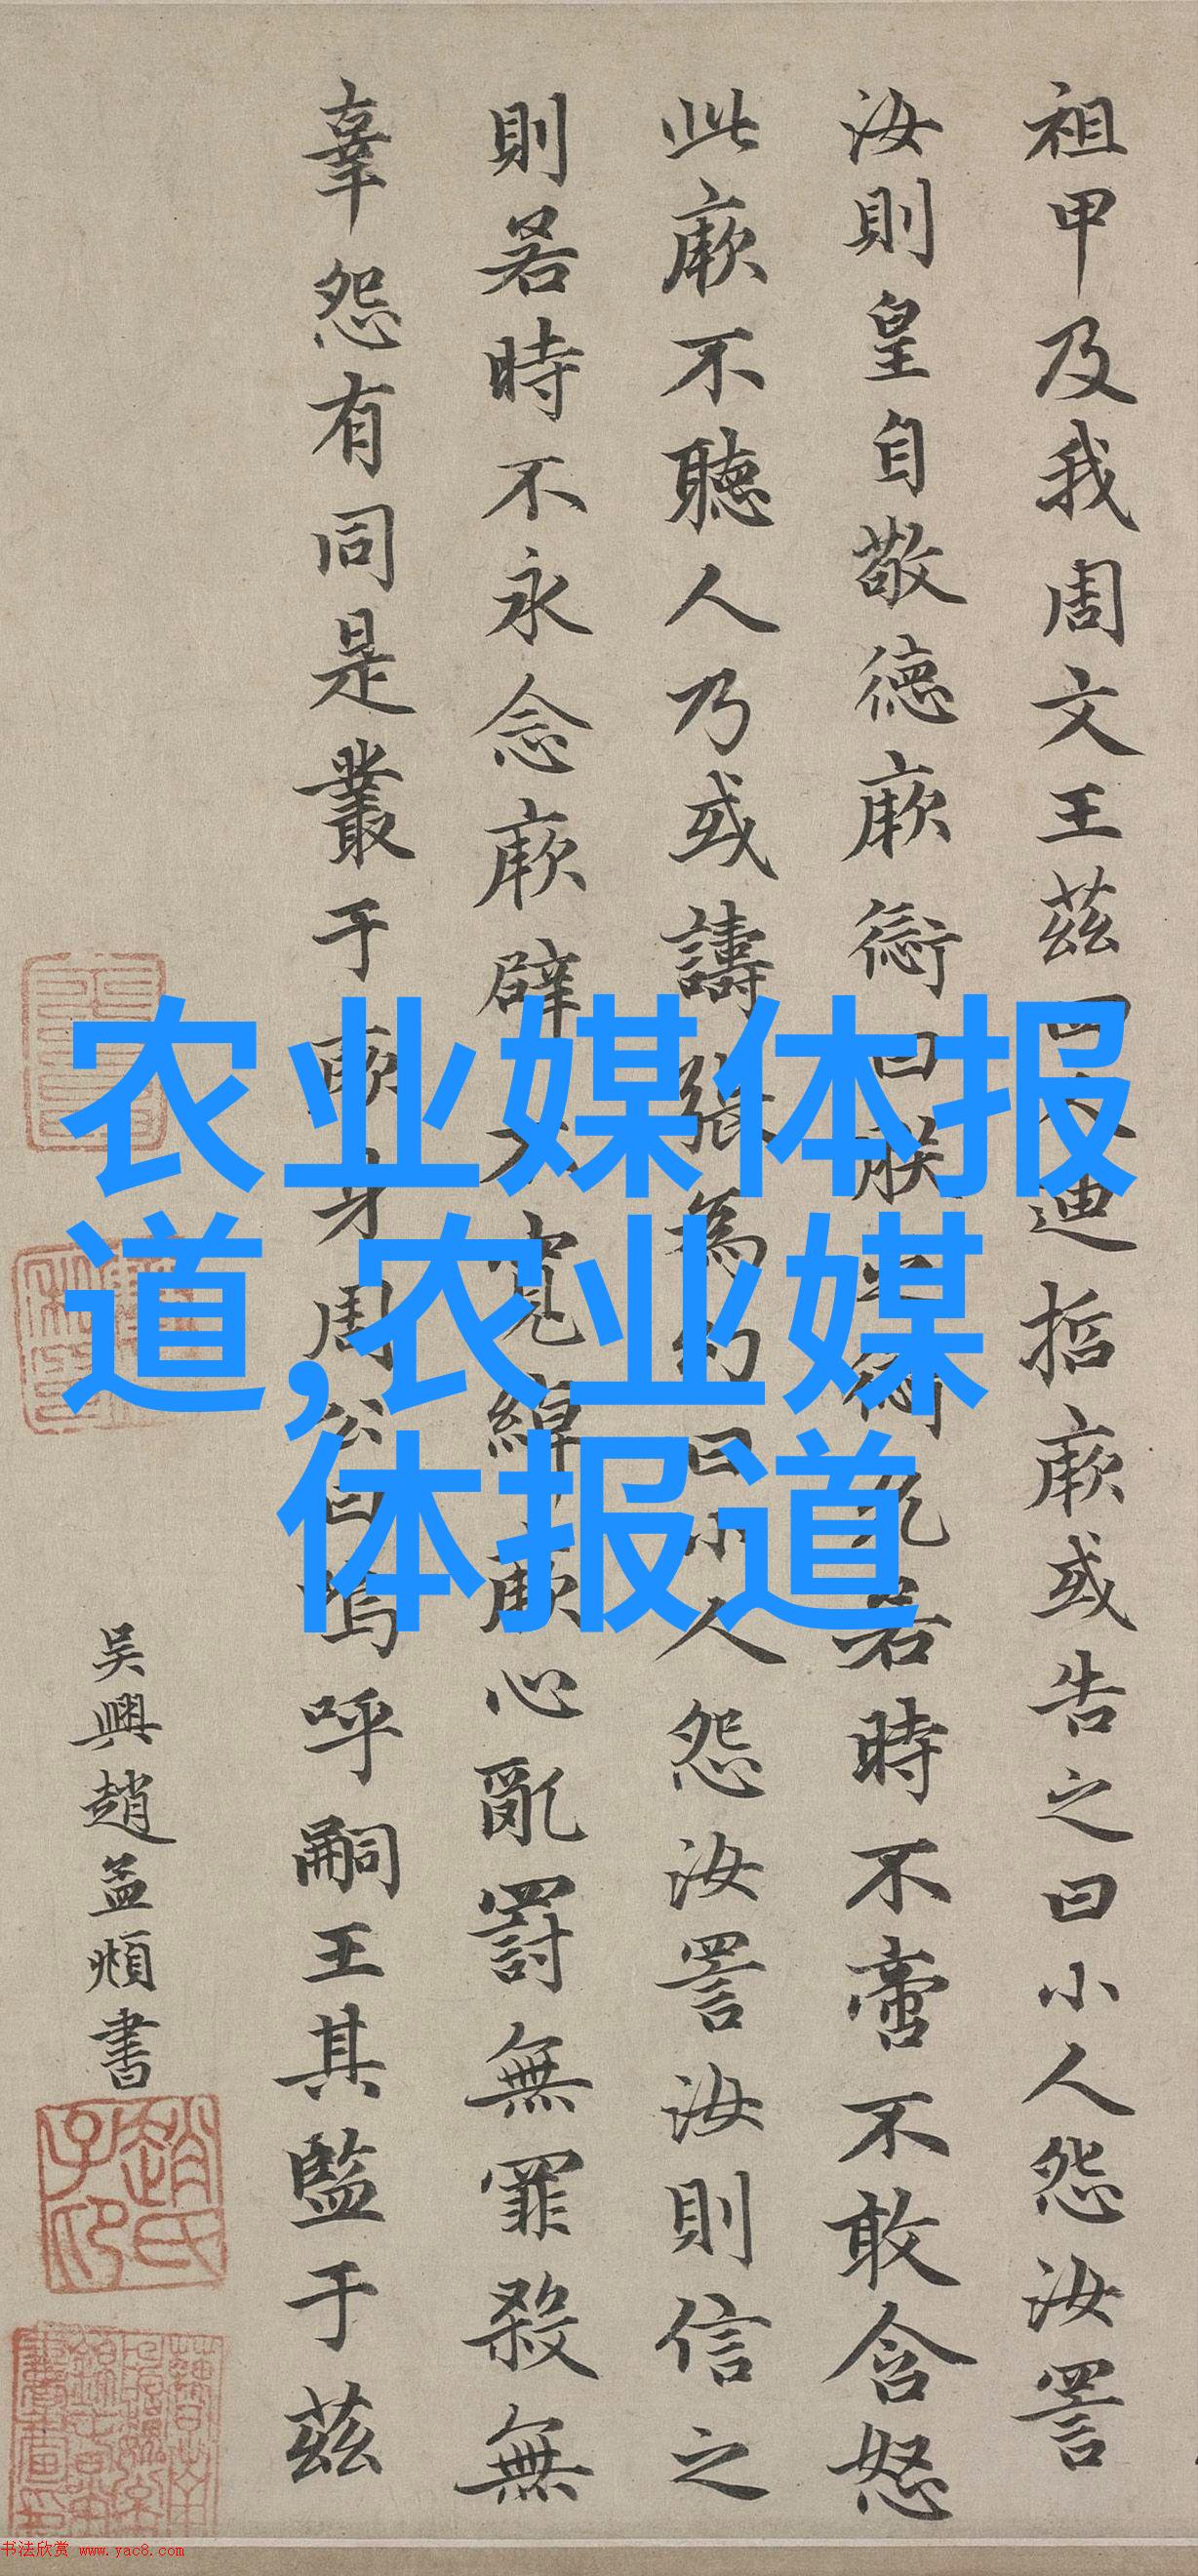 祖甲及我周文王茲四人迪哲厥或告之曰小人怨汝詈
汝則皇自敬德厥愆曰朕之愆允若時不啻不敢含怒
此厥不聽人乃或譸張為幻曰小人怨汝詈汝則信之
則若時不永念厥辟不寬綽厥心亂罰無罪殺無
辜怨有同是叢于厥身周公曰嗚呼嗣王其監于茲
吴興趙孟頫書
趙氏子昂
农业媒体报
道,农业媒
体报道
书法欣赏 www.yac8.com